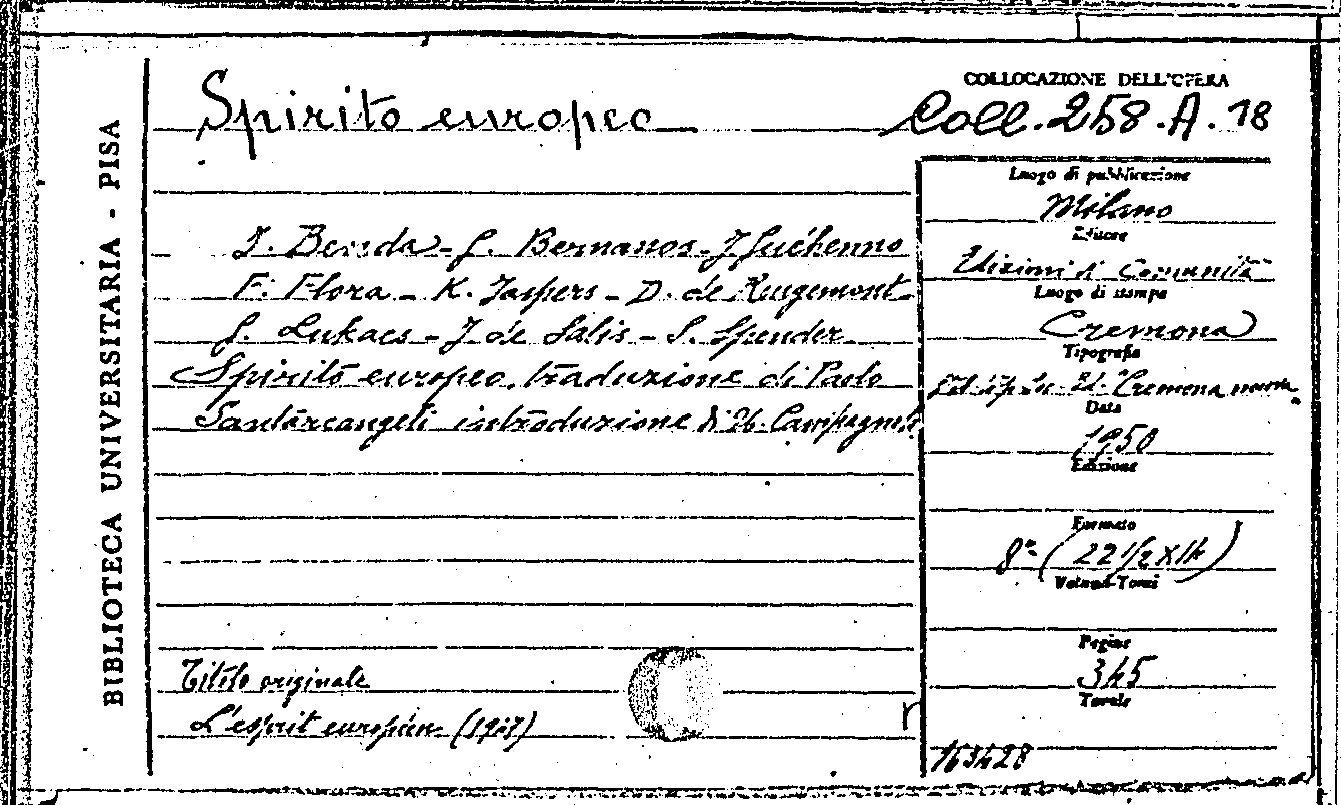 BIBLIOTECA UNIVERSITARIA - PISA
Spirito europeo
COLLOCAZIONE DELL'OPERA
Coll. 258.A.18
J. Benda - G. Bernanos - J. Guéhenno
F. Flora - K. Jaspers - D. de Rougemont
G. Lukacs - J. de Salis - S. Spender
Spirito europeo, traduzione di Paolo
Santarcangeli introduzione di U. Campagnolo
Titolo originale
L'esprit européen (1947)
r
Luogo di pubblicazione
Milano
Editore
Edizioni di Comunità
Luogo di stampa
Cremona
Tipografia
Ed. "Cremona nuova"
Data
1950
Edizione
Formato
8° (22 1/2 X 14)
Volumi-Tomi
Pagine
345
Tavole
163428